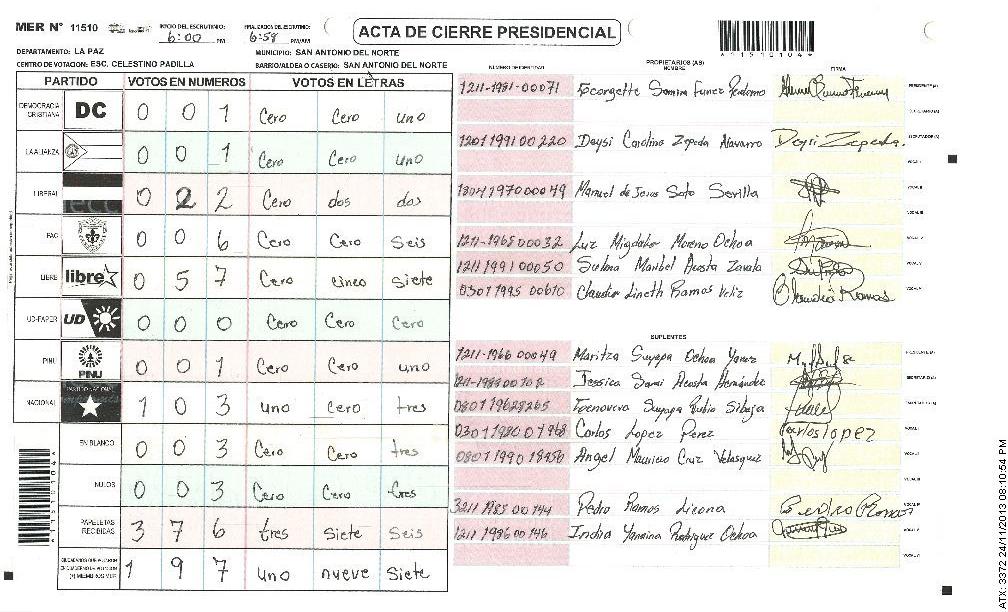 MER N° 11510
INICIO DEL ESCRUTINIO: 6:00 PM
FINALIZACION DEL ESCRUTINIO: 6:58 PM/AM
ACTA DE CIERRE PRESIDENCIAL
A11510104
DEPARTAMENTO: LA PAZ
MUNICIPIO: SAN ANTONIO DEL NORTE
CENTRO DE VOTACION: ESC. CELESTINO PADILLA
BARRIO/ALDEA O CASERIO: SAN ANTONIO DEL NORTE
PARTIDO VOTOS EN NUMEROS VOTOS EN LETRAS
DEMOCRACIA CRISTIANA DC 0 0 1 Cero Cero uno
LA ALIANZA 0 0 1 Cero Cero uno
LIBERAL 0 2 2 Cero dos dos
FAC 0 0 6 Cero Cero Seis
LIBRE libre 0 5 7 Cero cinco Siete
UD-FAPER UD 0 0 0 Cero Cero Cero
PINU PINU 0 0 1 Cero Cero uno
NACIONAL PARTIDO NACIONAL 1 0 3 uno Cero tres
EN BLANCO 0 0 3 Cero Cero tres
NULOS 0 0 3 Cero Cero tres
PAPELETAS RECIBIDAS 3 7 6 tres Siete Seis
CIUDADANOS QUE VOTARON 1 9 7 uno nueve Siete
NUMERO DE IDENTIDAD PROPIETARIOS (AS) NOMBRE FIRMA
1211-1981-00071 Georgette Samira Funez Perdomo PRESIDENTE (A)
SECRETARIO (A)
1201199100220 Deysi Carolina Zepeda Navarro Deysi Zepeda. ESCRUTADOR (A)
VOCAL I
1804197000049 Manuel de Jesus Soto Sevilla VOCAL II
VOCAL III
1211-1965 00032 Luz Migdalia Moreno Ochoa VOCAL IV
1211199100050 Maribel Acosta Zavala VOCAL V
03011995 00610 Claudia Lineth Ramos Veliz Claudia Ramos
SUPLENTES
1211-1966 00049 Maritza Suyapa Ochoa Yanez PRESIDENTE (A)
Jessica Sami Acosta Hernández SECRETARIO (A)
0801 19628265 Suyapa Rubio
Carlos Lopez Perez Carlos lopez VOCAL I
Angel Mauricio Cruz Velasquez VOCAL II
VOCAL III
1985 00144 Pedro Ramos Licona Pedro Ramos VOCAL IV
1211 1986 00146 Indira Yanina Rodriguez Ochoa VOCAL V
VOCAL VI
A11510104
ATX: 3372 24/11/2013 08:10:54 PM